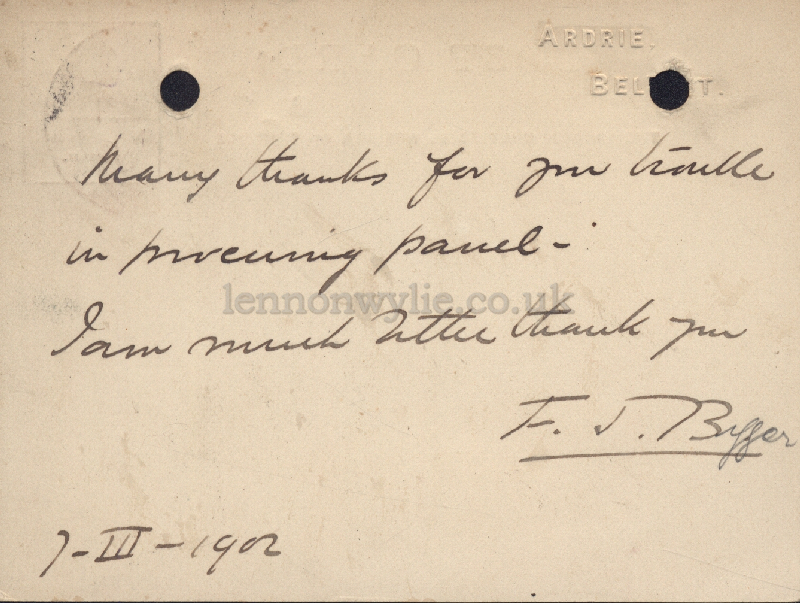 ARDRIE,
BELFAST.
Many thanks for your trouble
in procuring panel -
lennonwylie.co.uk
I am much better thank you
F. J. Bigger
7-III-1902